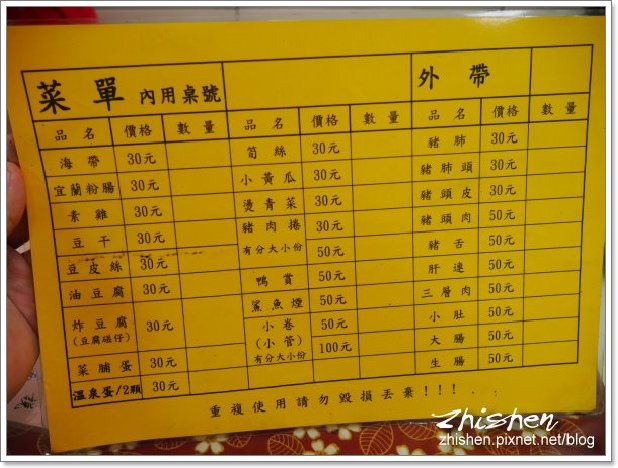 菜單 內用桌號 外帶
品名 價格 數量 品名 價格 數量 品名 價格 數量
海帶 30元
宜蘭粉腸 30元
素雞 30元
豆干 30元
豆皮絲 30元
油豆腐 30元
炸豆腐 30元
(豆腐碰仔)
菜脯蛋 30元
溫泉蛋/2顆 30元
筍絲 30元
小黃瓜 30元
燙青菜 30元
豬肉捲 30元
有分大小份 50元
鴨賞 50元
鯊魚煙 50元
小卷 50元
(小管) 100元
有分大小份
豬肺 30元
豬肺頭 30元
豬頭皮 30元
豬頭肉 50元
豬舌 50元
肝連 50元
三層肉 50元
小肚 50元
大腸 50元
生腸 50元
重複使用請勿毀損丟棄!!!
zhishen
zhishen.pixnet.net/blog